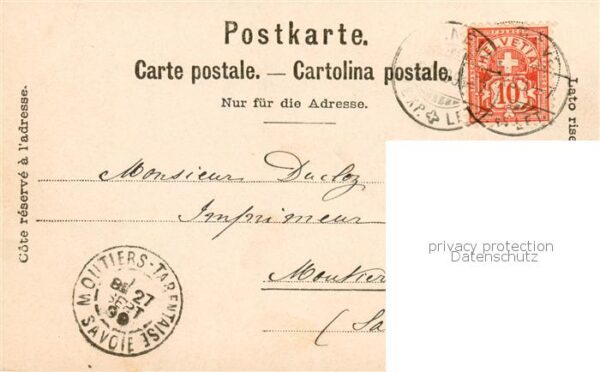 Postkarte.
Carte postale. — Cartolina postale.
Nur für die Adresse.
Côte réservé à l'adresse.
Lato rise
HELVETIA
10
Monsieur Ducloz
Imprimeur
Moutier
(Sa
MOUTIERS-TARENTAISE
27
SEPT
99
SAVOIE
privacy protection
Datenschutz